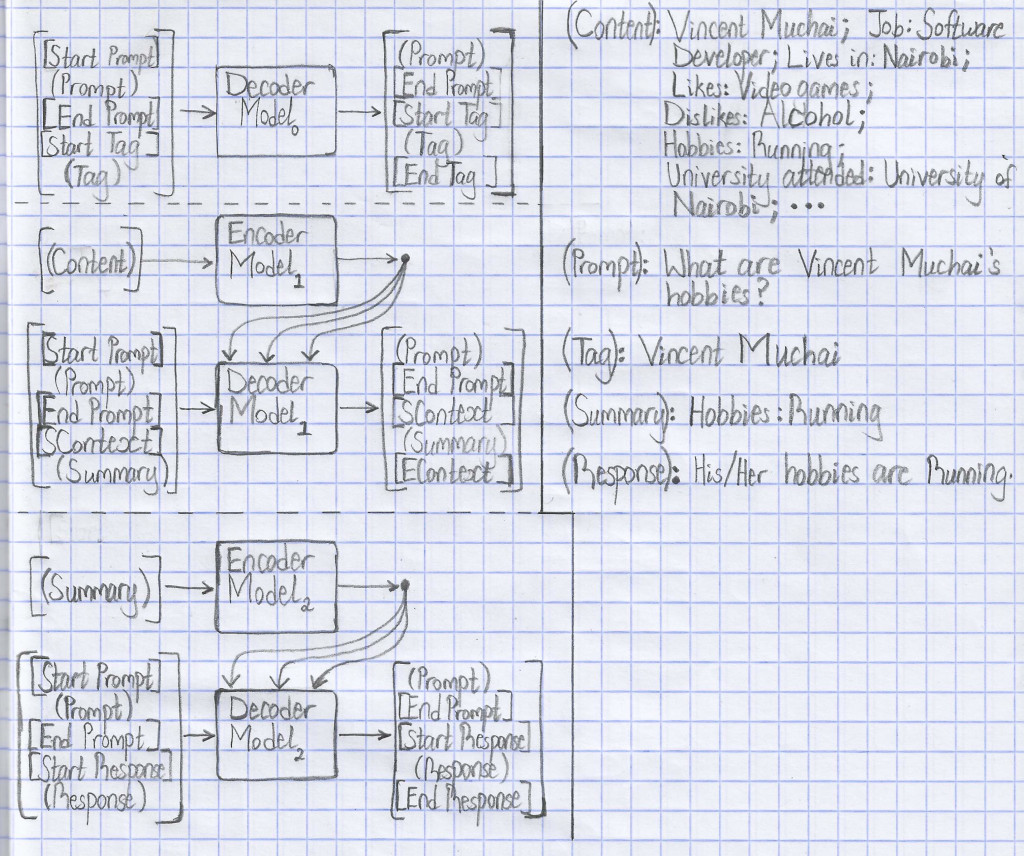 [Start Prompt]
(Prompt)
[End Prompt]
[Start Tag]
(Tag)
Decoder
Model0
(Prompt)
[End Prompt]
[Start Tag]
(Tag)
[End Tag]
(Content)
Encoder
Model1
[Start Prompt]
(Prompt)
[End Prompt]
[SContext]
(Summary)
Decoder
Model1
(Prompt)
[End Prompt]
[SContext]
(Summary)
[EContext]
(Summary)
Encoder
Model2
[Start Prompt]
(Prompt)
[End Prompt]
[Start Response]
(Response)
Decoder
Model2
(Prompt)
[End Prompt]
[Start Response]
(Response)
[End Response]
(Content): Vincent Muchai; Job: Software
Developer; Lives in: Nairobi;
Likes: Video games;
Dislikes: Alcohol;
Hobbies: Running;
University attended: University of
Nairobi; ...
(Prompt): What are Vincent Muchai's
hobbies?
(Tag): Vincent Muchai
(Summary): Hobbies: Running
(Response): His/Her hobbies are Running.